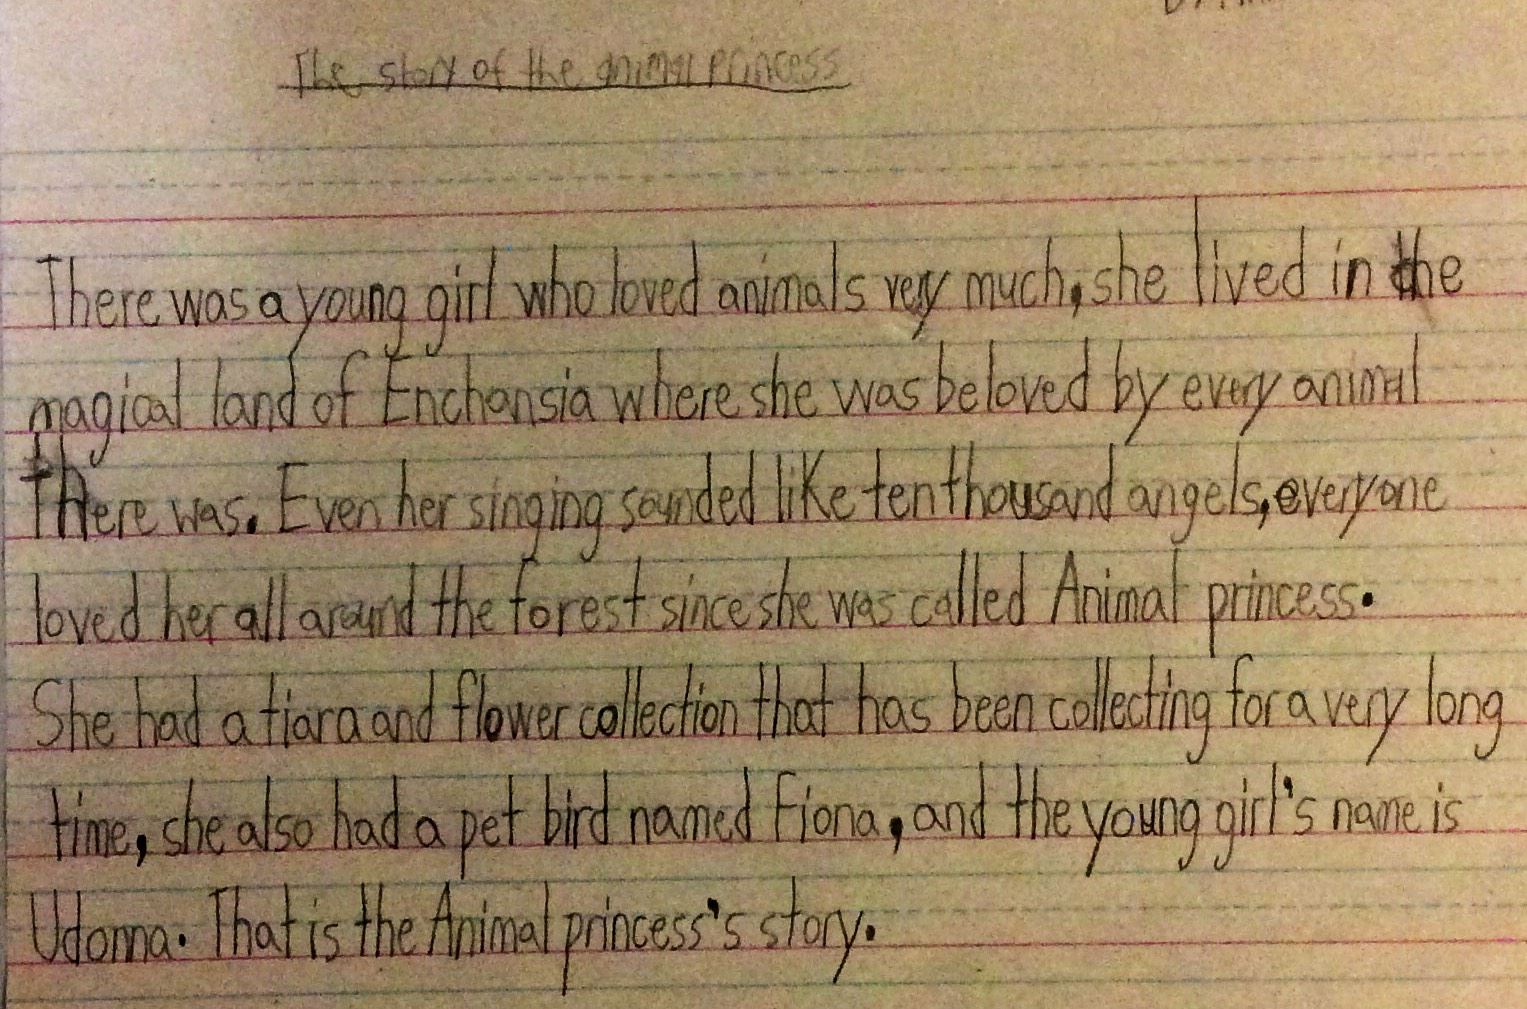 The story of the animal princess
There was a young girl who loved animals very much, she lived in the
magical land of Enchansia where she was beloved by every animal
There was. Even her singing sounded like ten thousand angels, everyone
loved her all around the forest since she was called Animal princess.
She had a tiara and flower collection that has been collecting for a very long
time, she also had a pet bird named Fiona, and the young girl's name is
Udonna. That is the Animal princess's story.